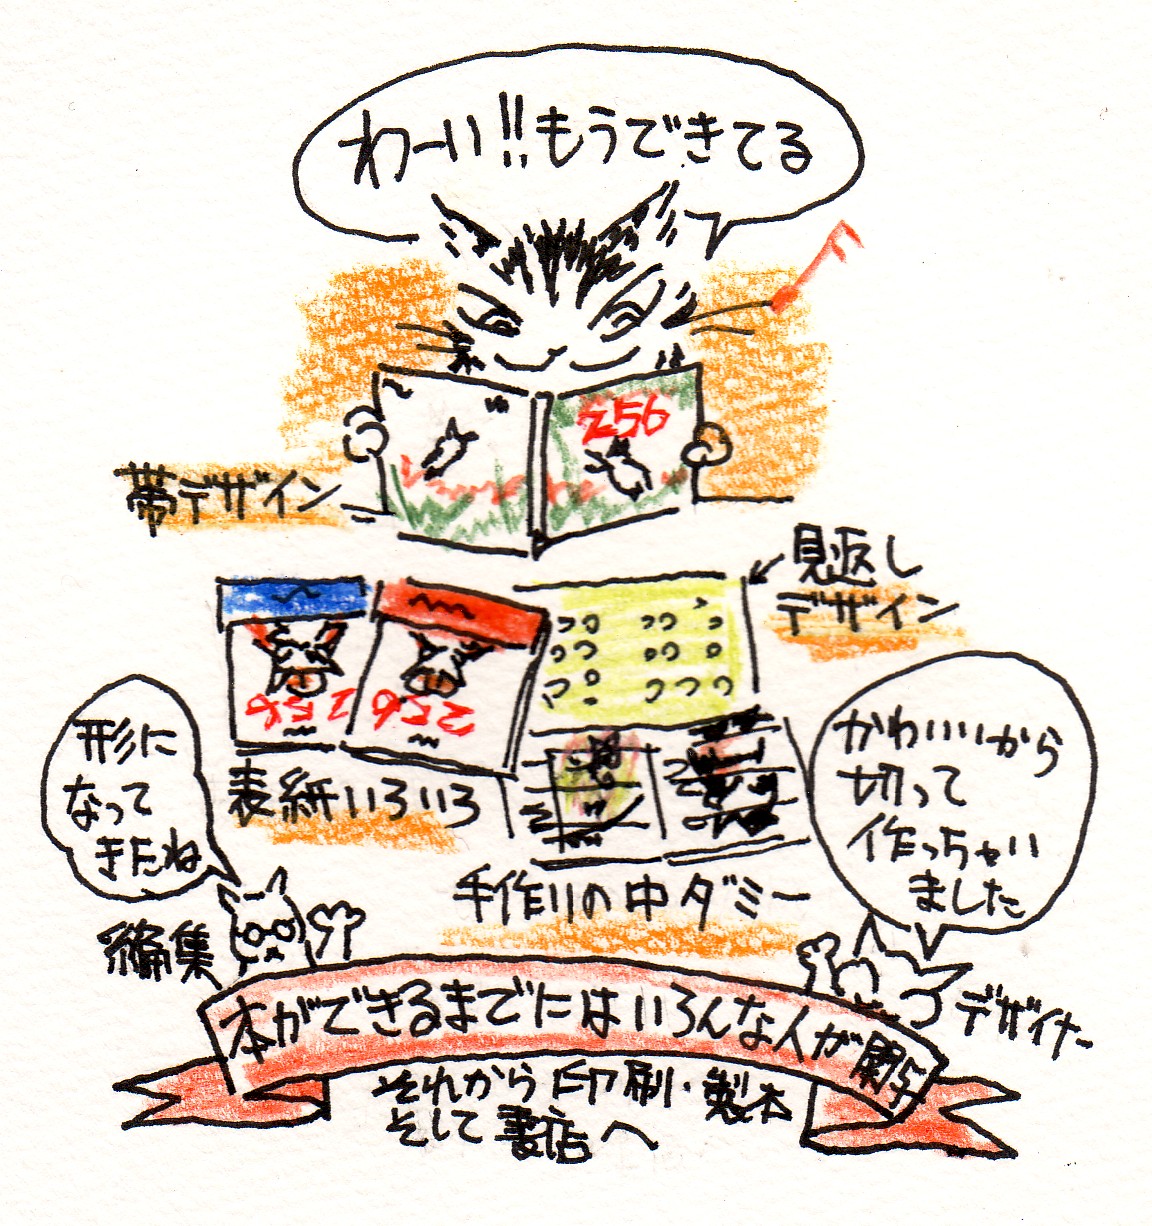 わーい!!もうできてる
256
帯デザイン
見返し
デザイン
256
256
形に
なって
きたね
表紙いろいろ
かわいいから
切って
作っちゃい
ました
手作りの中ダミー
編集
デザイナー
本ができるまでにはいろんな人が関与
それから印刷・製本
そして書店へ